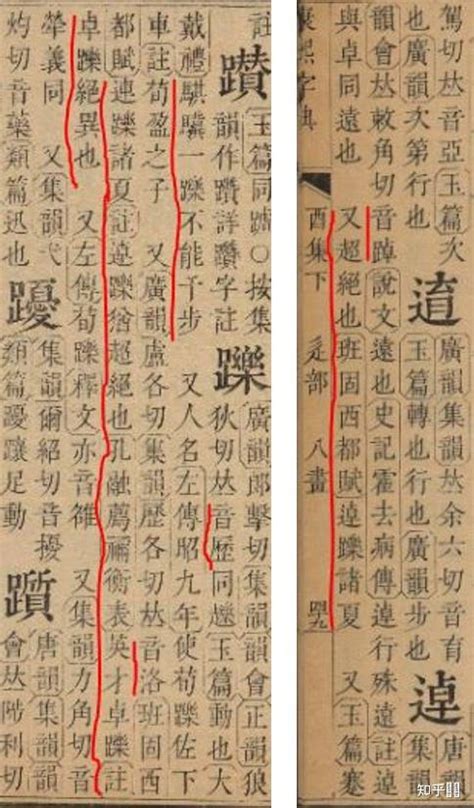 註
玉篇同〇按集
韻作躦詳躦字註
躒
廣韻郎擊切集韻韻會正韻狼
狄切𠀤音歷同玉篇動也大
戴禮騏驥一躒不能千步 又人名左傳昭九年使荀躒佐下
車註荀盈之子 又廣韻盧各切集韻歷各切𠀤音洛班固西
都賦連躒諸夏註逴躒猶超絕也孔融薦禰衡表英才卓躒註
卓躒絕異也 又左傳荀躒釋文亦音雒 又集韻力角切音
犖義同 又集韻弋
灼切音藥類篇迅也
集韻爾紹切音擾
類篇躟足動
躓
唐韻集韻韻
會𠀤陟利切
駕切𠀤音亞玉篇次
也廣韻次第行也
逳
廣韻集韻𠀤余六切音育
玉篇轉也行也廣韻步也
逴
唐韻集韻
韻會𠀤敕角切音踔說文遠也史記霍去病傳逴行殊遠註逴
與卓同遠也 又超絕也班固西都賦逴躒諸夏 又玉篇蹇
康熙字典 酉集下 辵部 八畫
知乎